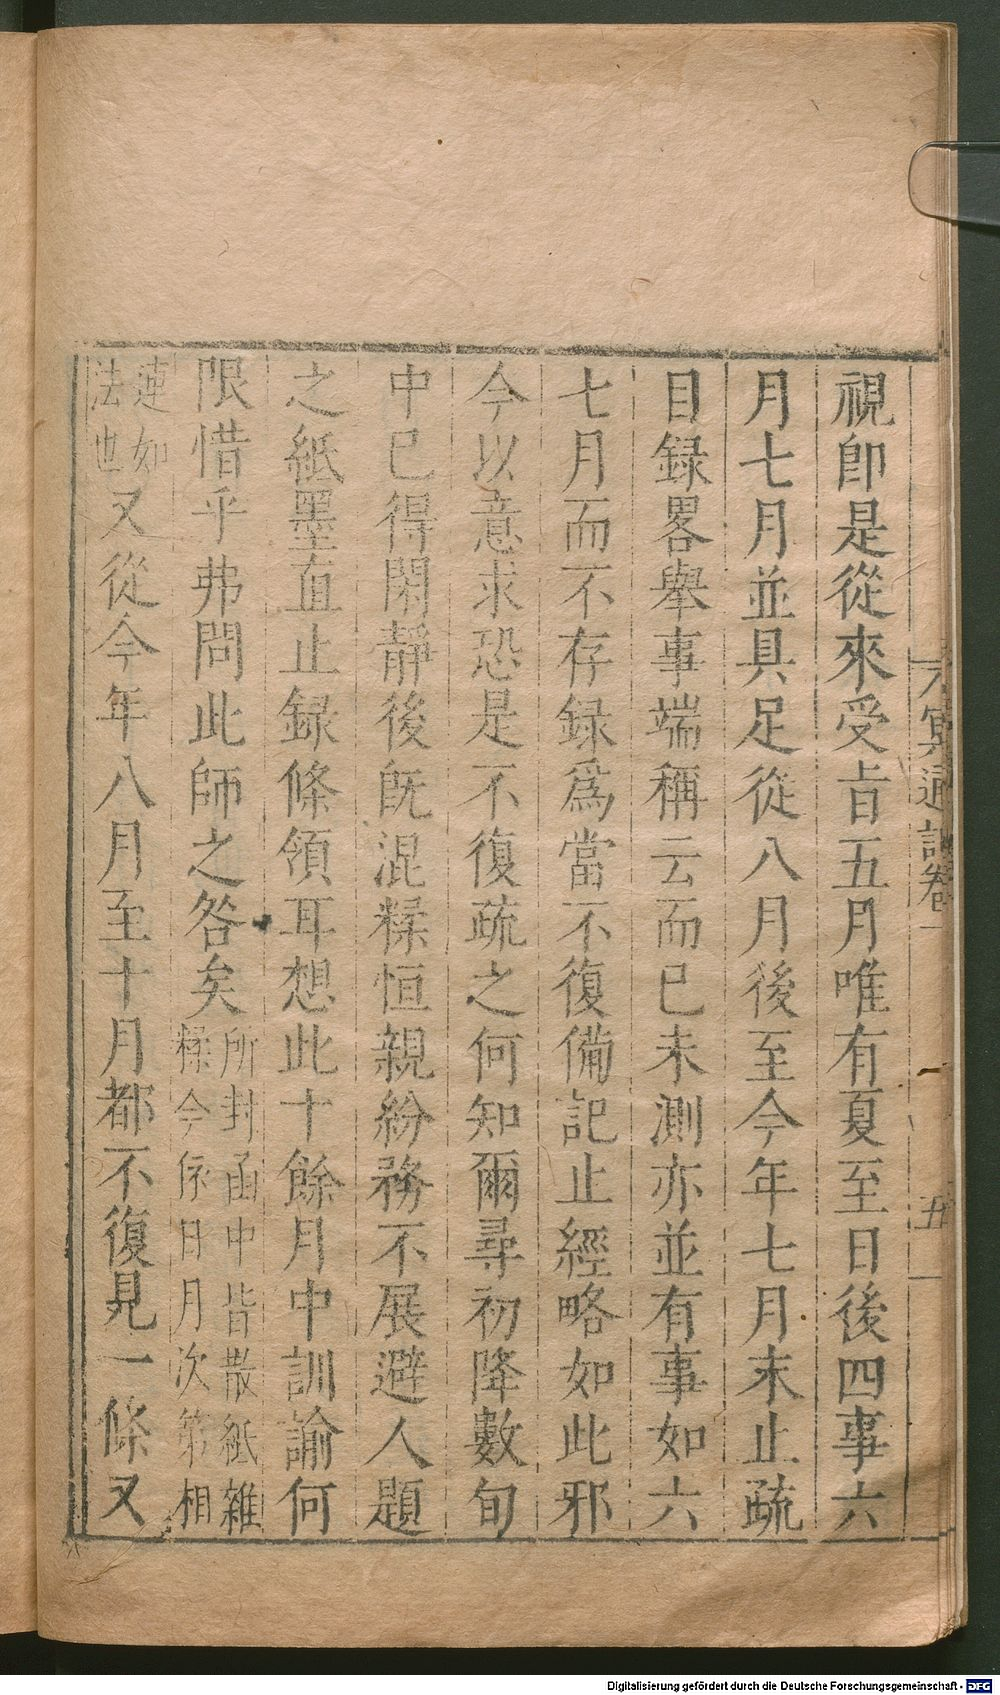 視卽是從來受旨五月唯有夏至日後四事六
月七月並具足從八月後至今年七月末止疏
目録畧舉事端稱云而已未測亦並有事如六
七月而不存録爲當不復備記止經略如此邪
今以意求恐是不復疏之何知爾尋初降數旬
中已得閑靜後旣混糅恒親紛務不展避人題
之紙墨直止録條領耳想此十餘月中訓諭何
限惜乎弗問此師之咎矣所封函中皆散紙雜糅今依日月次第相
連如法也又從今年八月至十月都不復見一條又
冥通記卷一
五
Digitalisierung gefördert durch die Deutsche Forschungsgemeinschaft - DFG